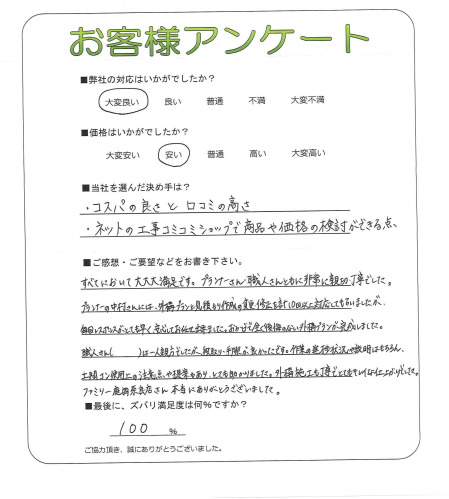 お客様アンケート
■弊社の対応はいかがでしたか?
大変良い 良い 普通 不満 大変不満
■価格はいかがでしたか?
大変安い 安い 普通 高い 大変高い
■当社を選んだ決め手は?
・コスパの良さと口コミの高さ
・ネットの工事コミコミショップで商品や価格の検討ができる点、
■ご感想・ご要望などをお書き下さい。
すべてにおいて大大大満足です。プランナーさん・職人さんともに非常に親切丁寧でした。
プランナーの中村さんには、外構プランと見積もり作成の変更修正を計10回以上対応してもらいましたが、
毎回レスポンスがとても早く安心してお任せ出来ました。おかげで全く後悔のない外構プランが完成しました。
職人さん( )は一人親方でしたが、段取り・手際が良かったです。作業の進捗状況や説明はもちろん、
土間コン使用上の注意点や提案もあり、とても助かりました。外構施工も丁寧でとてもキレイな仕上がりでした。
ファミリー庭園奈良店さん本当にありがとうございました。
■最後に、ズバリ満足度は何%ですか?
100 %
ご協力頂き、誠にありがとうございました。